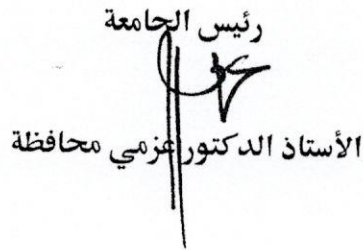 رئيس الجامعة
الأستاذ الدكتور عزمي محافظة